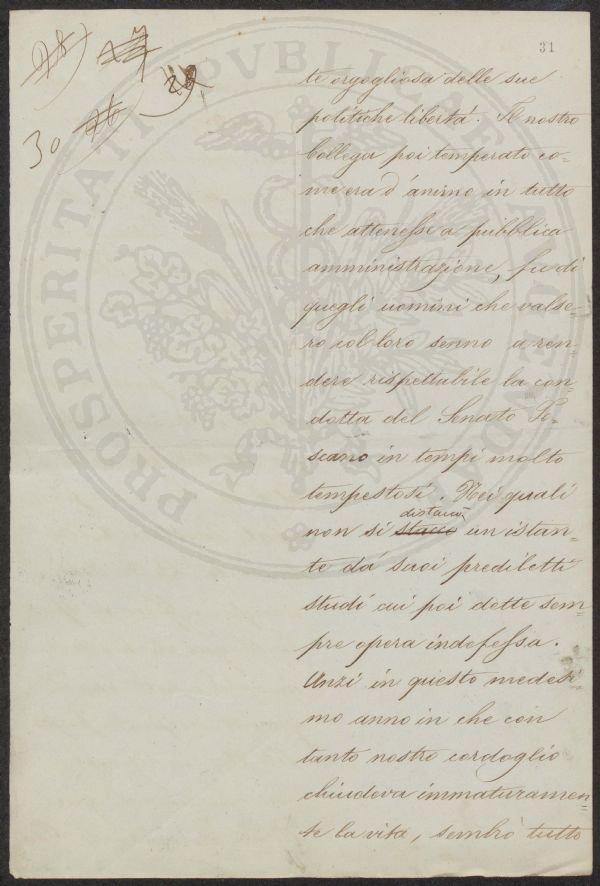 31
30
te orgogliosa delle sue
politiche libertà. Il nostro
Collega poi temperato co-
me era d'animo in tutto
che attenesse a pubblica
amministrazione, fu di
quegli uomini che valse-
ro col loro senno a ren-
dere rispettabile la con
dotta del Senato To-
scano in tempi molto
tempestosi. Nei quali
distaccò
non si staccò un istan-
te da' suoi prediletti
studi cui poi dette sem-
pre opera indefessa.
Anzi in questo medesi-
mo anno in che con
tanto nostro cordoglio
chiudeva immaturamen-
te la vita, sembrò tutto